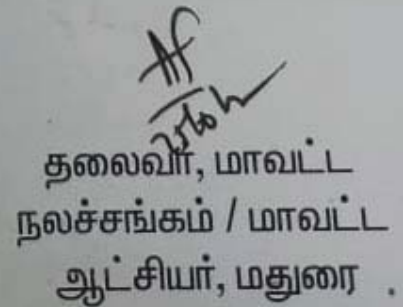 தலைவர், மாவட்ட
நலச்சங்கம் / மாவட்ட
ஆட்சியர், மதுரை .